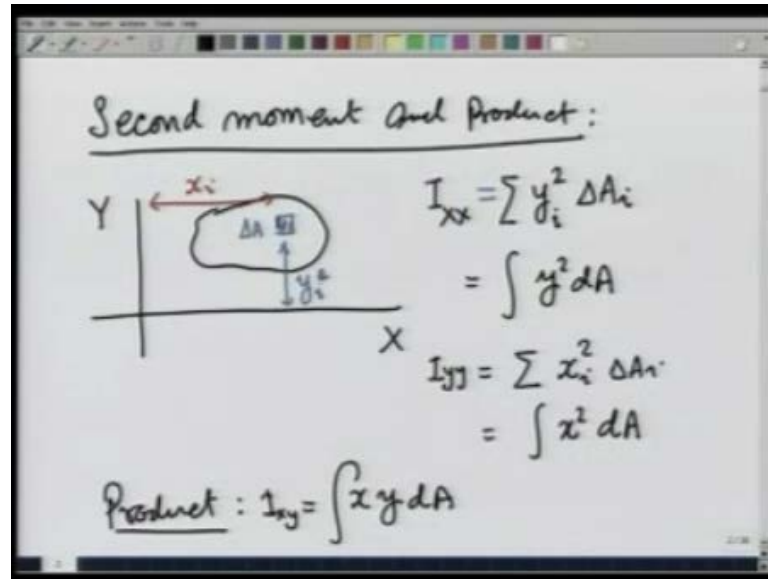 Second moment and Product:
Y
xᵢ
ΔA
yᵢ
X
I_xx = ∑ yᵢ² ΔAᵢ
= ∫ y² dA
I_yy = ∑ xᵢ² ΔAᵢ
= ∫ x² dA
Product: I_xy = ∫ x y dA